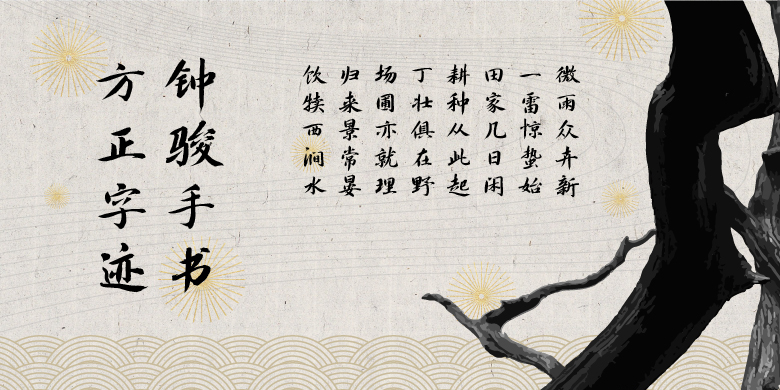 微雨众卉新
一雷惊蛰始
田家几日闲
耕种从此起
丁壮俱在野
场圃亦就理
归来景常晏
饮犊西涧水
钟骏手书
方正字迹